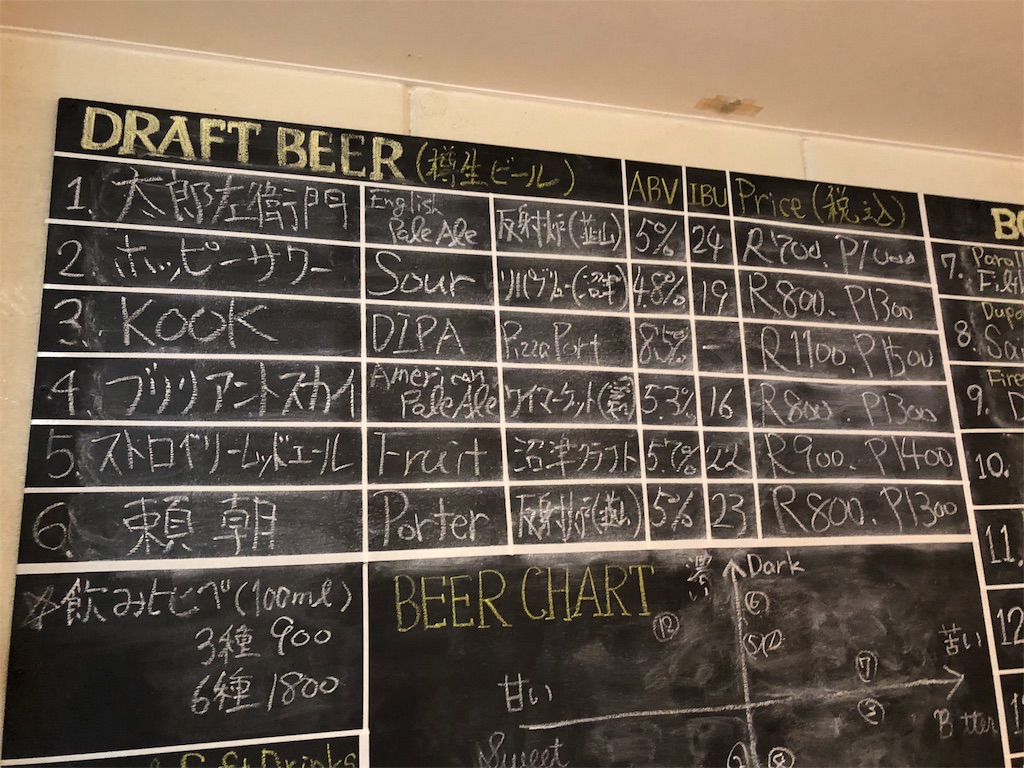 DRAFT BEER (樽生ビール) ABV IBU Price (税込)
1. 太郎左衛門 English Pale Ale 反射炉(韮山) 5% 24 R700. P1000
2. ホッピーサワー Sour リパブリュー(沼津) 4.8% 19 R800. P1300
3. KOOK DIPA Pizza Port 8.5% - R1100. P1500
4. ブリリアントスカイ American Pale Ale ワイマーケット( 5.3% 16 R800. P1300
5. ストロベリーレッドエール Fruit 沼津クラフト 5.7% 22 R900. P1400
6. 頼朝 Porter 反射炉(韮山) 5% 23 R800. P1300
☆飲み比べ(100ml)
3種 900
6種 1800
Soft Drinks
BEER CHART
濃い Dark
⑥
⑫
⑤
⑦
苦い
甘い
③
Bitter
Sweet
7. Parall
8. Dupo
Sai
9. Fire
D
10.
11.
12